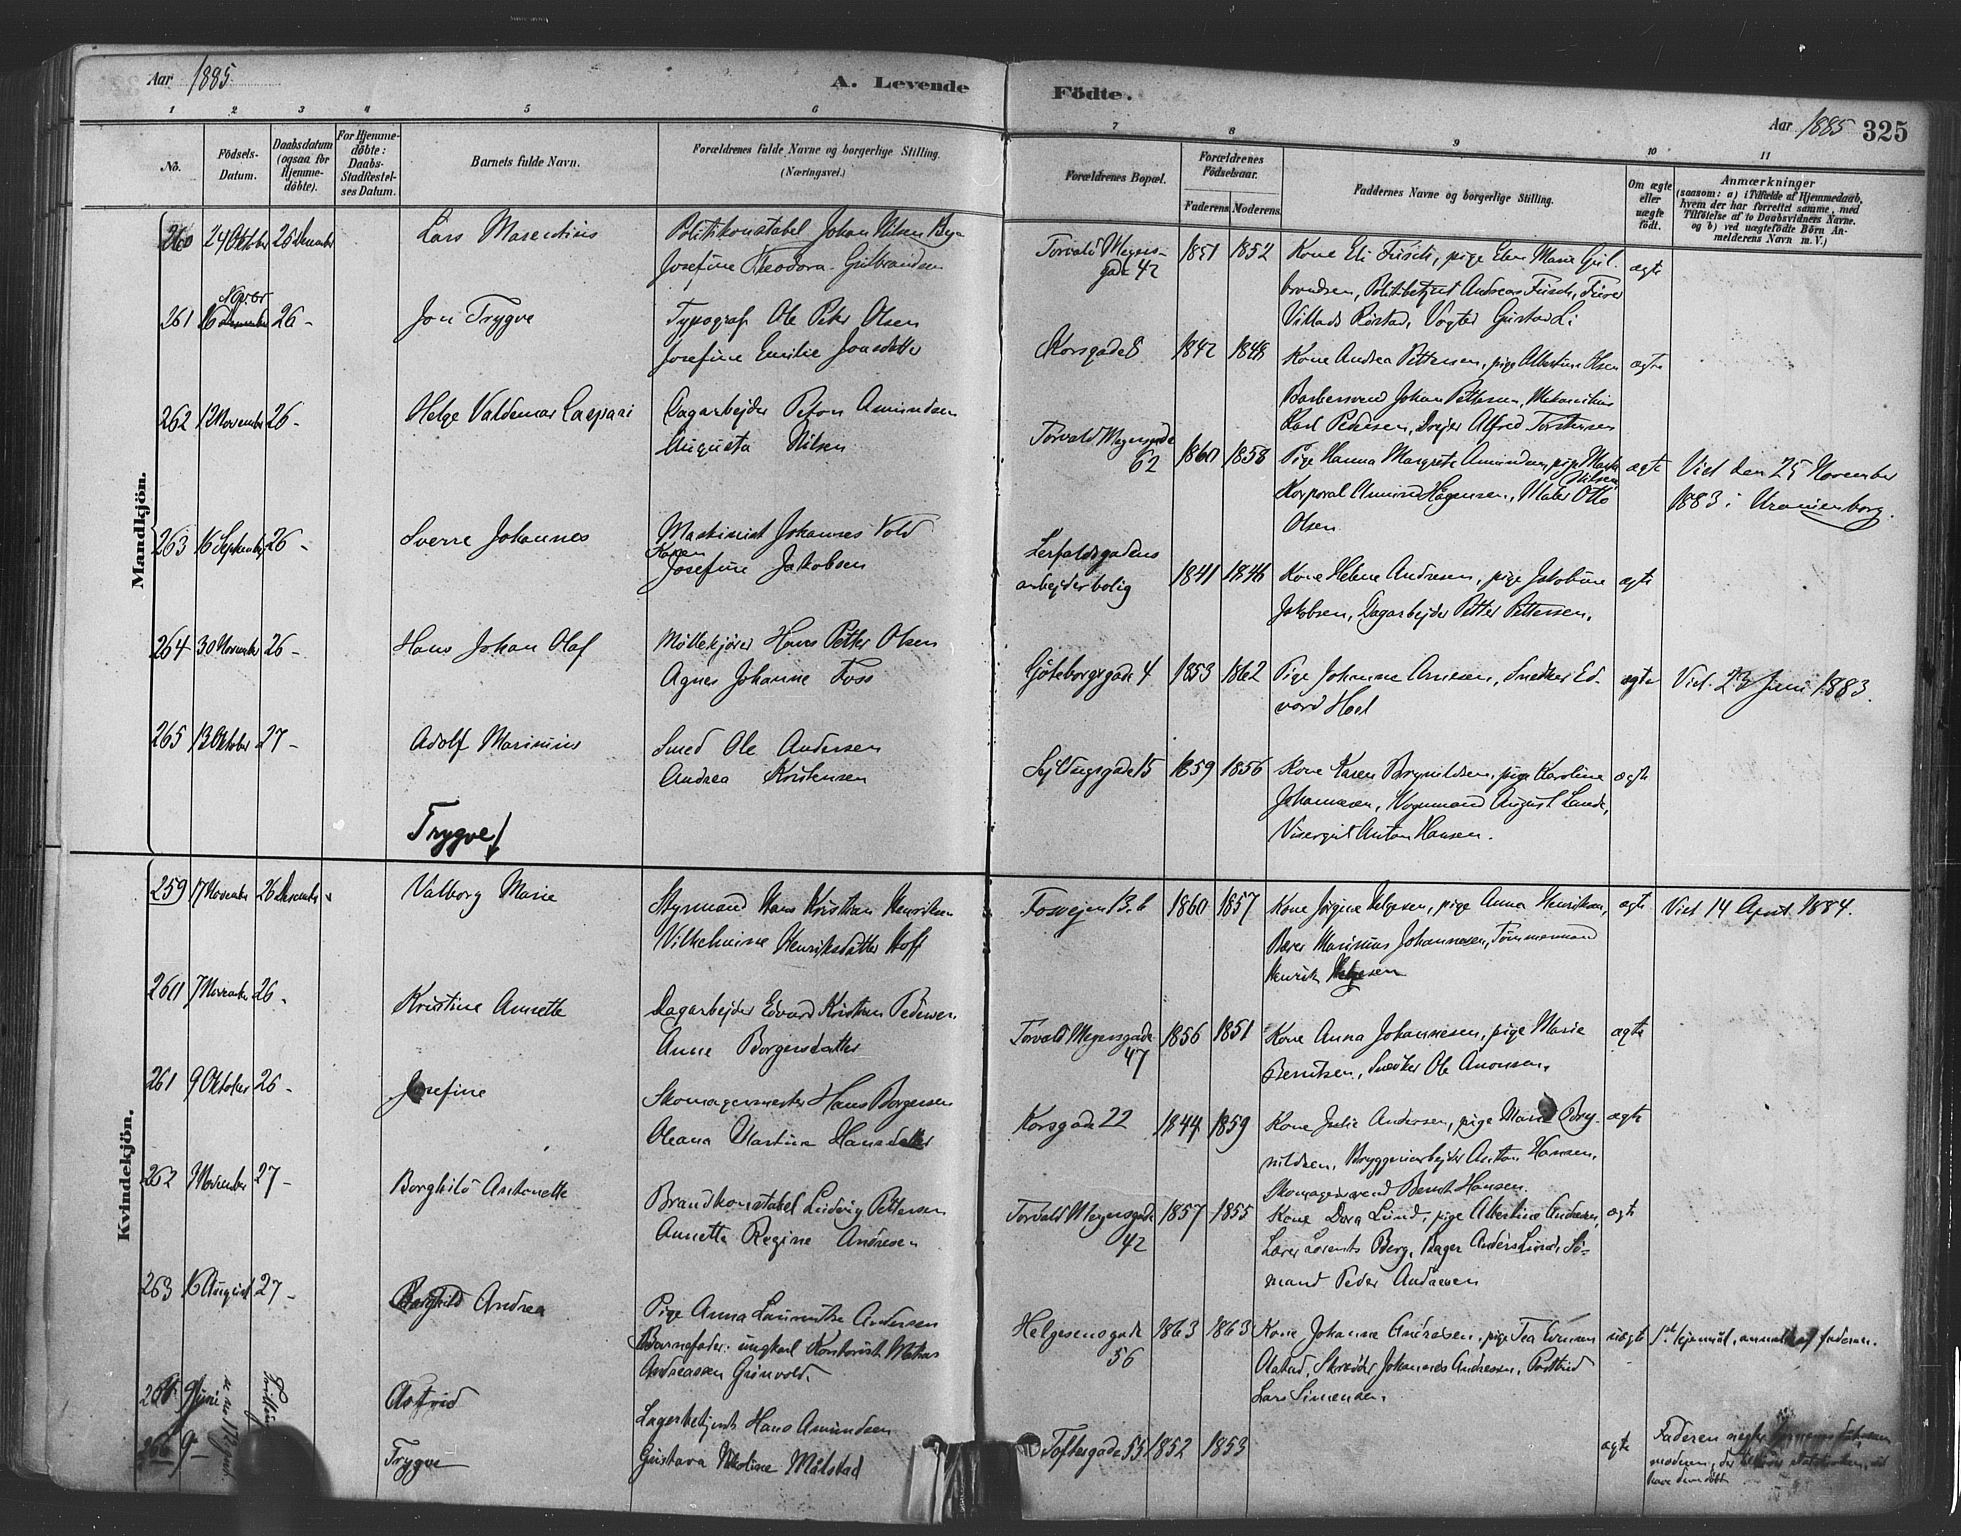 Aar 1885
A. Levende Födte.
Aar 1885 325
1 2 3 4 5 6 7 8 9 10 11
No.
Födsels-Datum.
Daabsdatum (ogsaa for Hjemme-döbte).
For Hjemme-döbte: Daabs-Stadfæstel-ses Datum.
Barnets fulde Navn.
Forældrenes fulde Navne og borgerlige Stilling. (Næringsvei.)
Forældrenes Bopæl.
Forældrenes Födselsaar.
Faderens. Moderens.
Faddernes Navne og borgerlige Stilling.
Om ægte eller uægte födt.
Anmærkninger
(saasom: a) i Tilfælde af Hjemmedaab, hvem der har forrettet samme, med Tilföielse af to Daabsvidners Navne. og b) ved uægtefödte Börn Anmelderens Navn m. V.)
Mandkjön.
260 24 Oktober 26 December Lars Marentius Politikonstabel Johan Nilsen Bye
Josefine Theodora Gulbrandsen
Torvald Meyers-
gade 42 1851 1852 Kone Eli Frisch, pige Elen Marie Gul-
brandsen, Politibetjent Andreas Frisch, Furer
Villads Röstad, Vogter Gustav Li ægte
261 16 Novbr 26 - Jon Trygve Typograf Ole Peter Olsen
Josefine Emilie Jonsdatter
Korsgade 8 1842 1848 Kone Andrea Pettersen, pige Albertine Olsen ægte
Barbersvend Johan Pettersen, Mekanikus
Karl Pedersen, Drejer Alfred Torstensen
262 12 November 26 - Helge Valdemar Caspari Dagarbejder Peton Amundsen
Augusta Nilsen
Torvald Meyersgade
62 1860 1858 Pige Hanna Margrete Amundsen, pige Marte
Nilsen
Korporal Amund Hagensen, Maler Otto
Olsen ægte Viet den 25 November
1883 i Uranienborg.
263 16 September 26 - Sverre Johannes Maskinist Johannes Vold
Karen
Josefine Jakobsen
Lerfaldsgadens
arbejderbolig 1841 1846 Kone Helene Andresen, pige Jakobine
Jakobsen, Dagarbejder Petter Pettersen. ægte
264 30 November 26 - Hans Johan Olaf Möllekjörer Hans Petter Olsen
Agnes Johanne Foss
Göteborgsgade 4 1853 1862 Pige Johanne Arnesen, Snedker Ed-
vard Hoel ægte Viet 23 Juni 1883.
265 13 Oktober 27 - Adolf Marinius Smed Ole Andersen
Andrea Kristensen
Sejldugsgade 15 1859 1856 Kone Karen Brynildsen, pige Karoline
Johannesen, Vognmand August Lunde,
Visergut Anton Hansen. ægte
Trygve ↓
Kvindekjön.
259 17 November 26 December Valborg Marie Styrmand Hans Kristian Henriksen
Vilhelmine Henriksdatter Hoff
Fosvejen 13. b 1860 1857 Kone Jörgine Helgesen, pige Anna Henriksen,
Bærer Marinius Johannesen, Tömmermand
Henrik Helgesen ægte Viet 14 April 1884.
260 7 November 26 - Kristine Annette Dagarbejder Edvard Kristian Pedersen
Anne Borgersdatter
Torvald Meyersgade
47 1856 1851 Kone Anna Johannesen, pige Marie
Berntsen, Snedker Ole Aronsen. ægte
261 9 Oktober 26 - Josefine Skomagermester Hans Borgersen
Oleana Martine Hansdatter
Korsgade 22 1844 1859 Kone Julie Andersen, pige Marie Bry-
nildsen, Bryggeriarbejder Anton Hansen,
Skomagersvend Bernt Hansen. ægte
262 9 November 27 - Borghild Antonette Brandkonstabel Ludvig Pettersen
Annette Regine Andresen
Torvald Meyersgade
42 1857 1855 Kone Dora Lund, pige Albertine Andresen,
Lærer Lorents Berg, Bager Anders Lund, Sö-
mand Peder Andresen ægte
263 16 August 27 - Borghild Andrea Pige Anna Laurentse Andersen
Barnefader: ungkarl Kontorist Mathias
Andreasen Grönvold.
Helgesensgade
56 1863 1863 Kone Johanne Andresen, pige Tea Evensen
Alstad, Skrædder Johannes Andresen, Postbud
Lars Simensen. uægte anmeldt af faderen.
9 Juni Astrid Lagerbetjent Hans Amundsen
266 9 - Trygve Gustava Nikoline Målstad
Toftesgade 55 1852 1853 ægte Faderen
moderen, der
have dem döbt